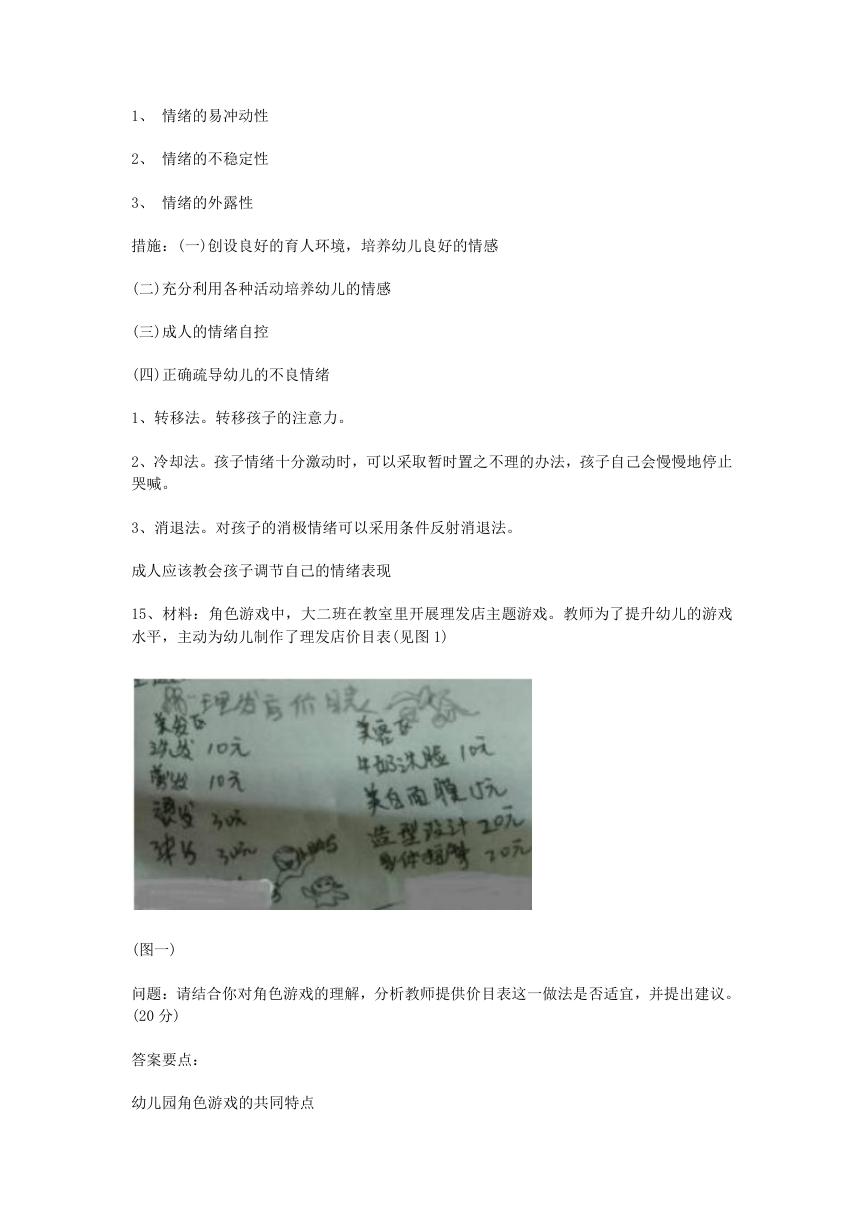 1、 情绪的易冲动性
2、 情绪的不稳定性
3、 情绪的外露性
措施：(一)创设良好的育人环境，培养幼儿良好的情感
(二)充分利用各种活动培养幼儿的情感
(三)成人的情绪自控
(四)正确疏导幼儿的不良情绪
1、转移法。转移孩子的注意力。
2、冷却法。孩子情绪十分激动时，可以采取暂时置之不理的办法，孩子自己会慢慢地停止
哭喊。
3、消退法。对孩子的消极情绪可以采用条件反射消退法。
成人应该教会孩子调节自己的情绪表现
15、材料：角色游戏中，大二班在教室里开展理发店主题游戏。教师为了提升幼儿的游戏
水平，主动为幼儿制作了理发店价目表(见图1)
理发店价目表
美发区
洗发 10元
剪发 10元
烫发 30元
30元
美容区
牛奶洗脸 10元
美白面膜 15元
造型设计 20元
20元
(图一)
问题：请结合你对角色游戏的理解，分析教师提供价目表这一做法是否适宜，并提出建议。
(20分)
答案要点：
幼儿园角色游戏的共同特点